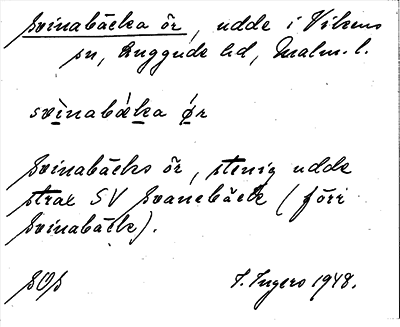 Svinabäcka ör, udde i Vikens
sn, Luggude hd, Malm. l.
svìnabǽka ǿr
Svinabäcks ör, stenig udde
strax SV Svanebäck (förr
Svinabäck).
SOS I. Ingers 1948.